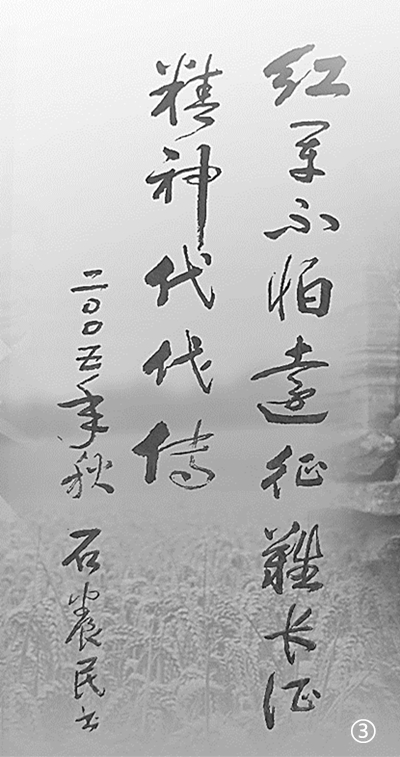 红军不怕遠征難长征
精神代代傳
二〇〇五年秋 石農民书
③